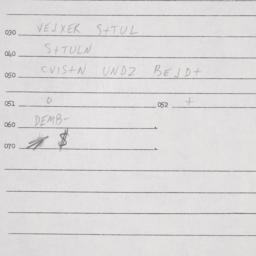 030 VEJXER S+TUL
040 S+TULN
050 CVIS+N UNDZ BEJD+
051 O 052 +
060 DEMB-
070 $